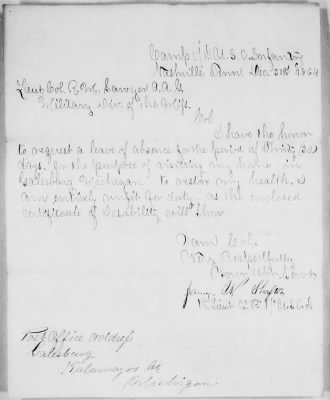 Camp 17th U.S.C. Infantry
Nashville Tenn Dec. 31st 1864
Lieut Col. R. M. Sawyer A.A.G
Military Div. of the Miss.
Col
I have the honor
to request a leave of absence for the period of Thirty (30)
days, for the purpose of visiting my home in
Galesburg Michigan to restore my health. I
am entirely unfit for duty, as the enclosed
certificate of Disability will show
I am Col.
Very Respectfully
Your Obt. Servt.
James
1st Lieut
Post Office Address
Galesburg
Kalamazoo Co
Michigan